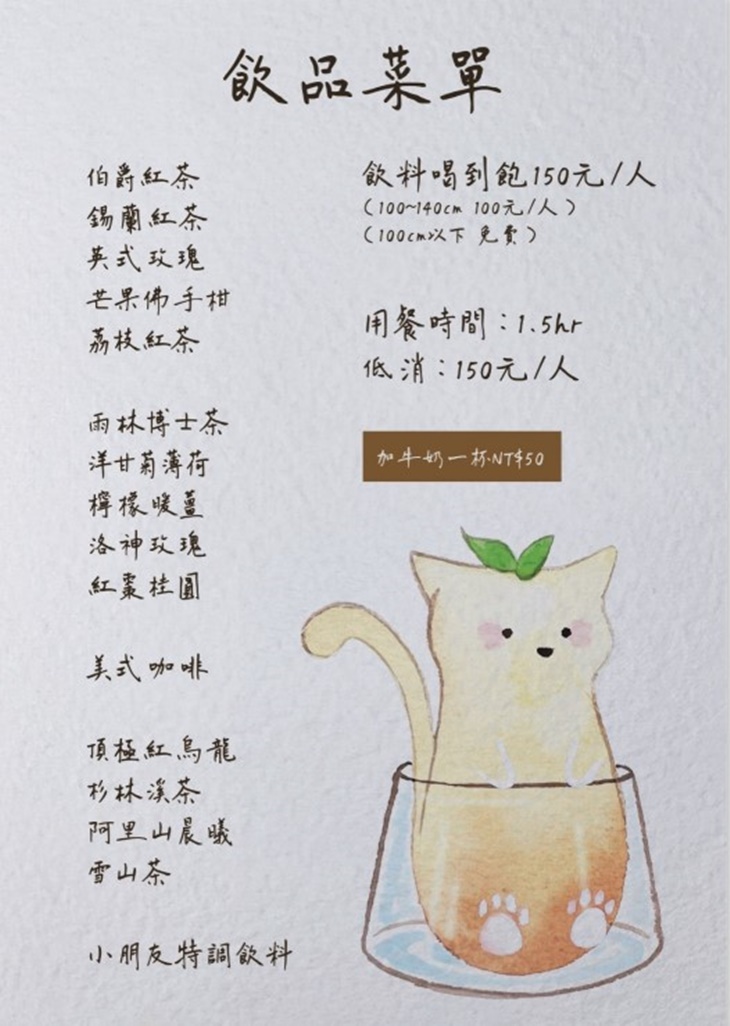 飲品菜單
伯爵紅茶
錫蘭紅茶
英式玫瑰
芒果佛手柑
荔枝紅茶
雨林博士茶
洋甘菊薄荷
檸檬暖薑
洛神玫瑰
紅棗桂圓
美式咖啡
頂極紅烏龍
杉林溪茶
阿里山晨曦
雪山茶
小朋友特調飲料
飲料喝到飽150元/人
(100~140cm 100元/人)
(100cm以下 免費)
用餐時間:1.5hr
低消:150元/人
加牛奶一杯NT$50